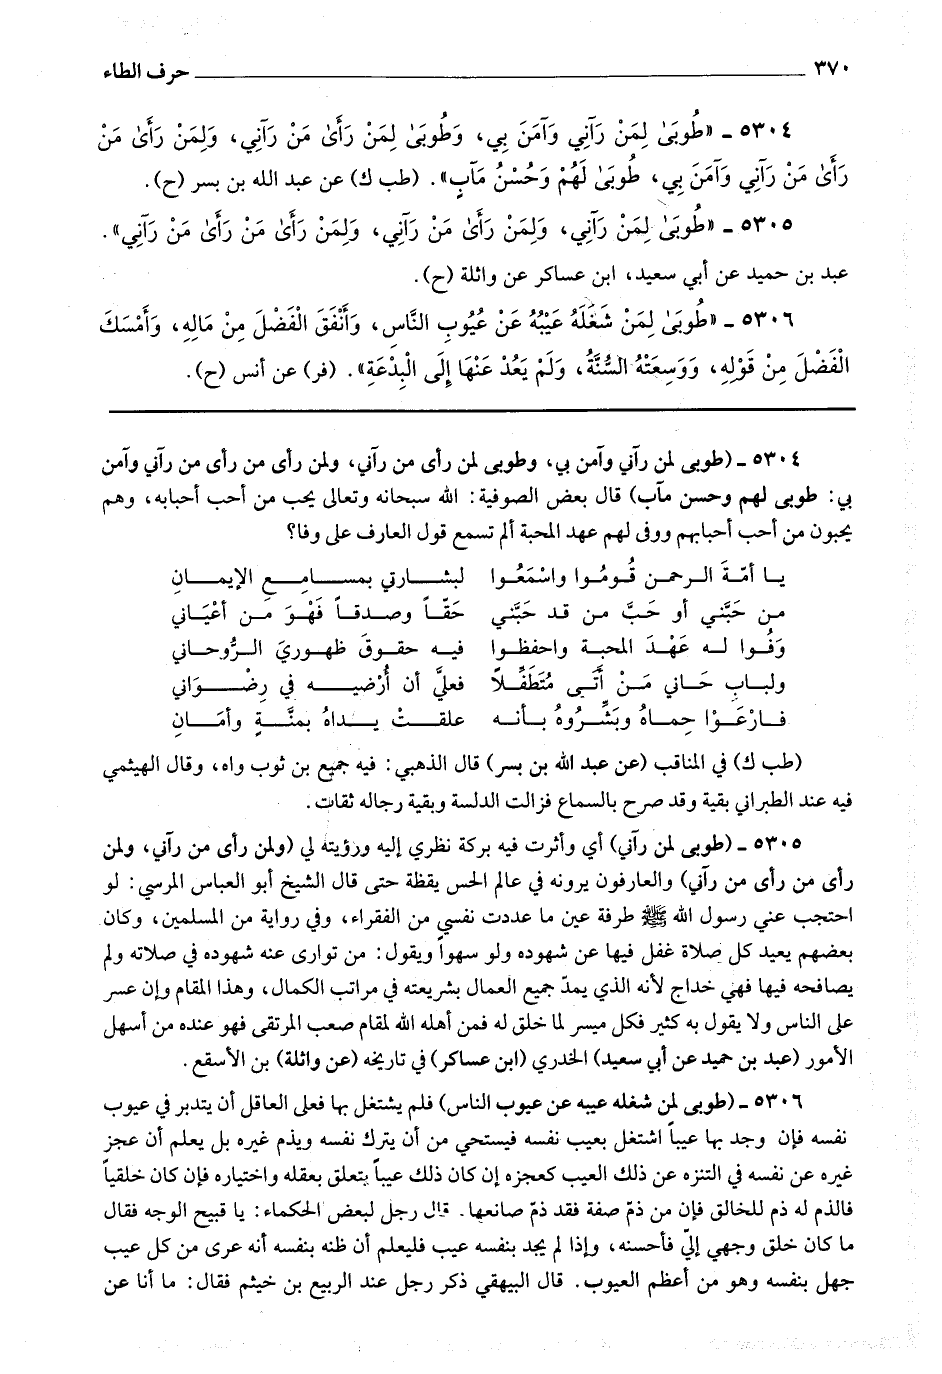 ٣٧٠ حرف الطاء
٥٣٠٤ ـ «طُوبَىٰ لِمَنْ رَآنِي وَآمَنَ بِي، وَطُوبَىٰ لِمَنْ رَأَىٰ مَنْ رَآنِي، وَلِمَنْ رَأَىٰ مَنْ
رَأَىٰ مَنْ رَآنِي وَآمَنَ بِي، طُوبَىٰ لَهُمْ وَحُسْنُ مَآبٍ». (طب ك) عن عبد الله بن بسر (ح).
٥٣٠٥ ـ «طُوبَىٰ لِمَنْ رَآنِي، وَلِمَنْ رَأَىٰ مَنْ رَآنِي، وَلِمَنْ رَأَىٰ مَنْ رَأَىٰ مَنْ رَآنِي».
عبد بن حميد عن أبي سعيد، ابن عساكر عن واثلة (ح).
٥٣٠٦ ـ «طُوبَىٰ لِمَنْ شَغَلَهُ عَيْبُهُ عَنْ عُيُوبِ النَّاسِ، وَأَنْفَقَ الْفَضْلَ مِنْ مَالِهِ، وَأَمْسَكَ
الْفَضْلَ مِنْ قَوْلِهِ، وَوَسِعَتْهُ السُّنَّةُ، وَلَمْ يَعُدْ عَنْهَا إِلَى الْبِدْعَةِ». (فر) عن أنس (ح).
٥٣٠٤ ـ (طوبى لمن رآني وآمن بي، وطوبى لمن رأى من رآني، ولمن رأى من رأى من رآني وآمن
بي: طوبى لهم وحسن مآب) قال بعض الصوفية: الله سبحانه وتعالى يحب من أحب أحبابه، وهم
يحبون من أحب أحبابهم ووفى لهم عهد المحبة ألم تسمع قول العارف على وفا؟
يا أمّةَ الرحمن قُومُوا واسْمَعُوا لبشارتي بمسامِعِ الإيمانِ
من حَبَّني أو حَبَّ من قد حَبَّني حَقّاً وصدقاً فَهْوَ مَن أعْيَاني
وَفُوا له عَهْدَ المحبة واحفظوا فيه حقوقَ ظهوريَ الرُّوحاني
ولبابِ حَاني مَنْ أَتَى مُتَطَفِّلاً فعليَّ أن أُرْضيه في رِضْوَاني
فارْعَوْا حِماهُ وبَشِّرُوهُ بأنه علقتْ يداهُ بمنَّةٍ وأمَانِ
(طب ك) في المناقب (عن عبد الله بن بسر) قال الذهبي: فيه جميع بن ثوب واه، وقال الهيثمي
فيه عند الطبراني بقية وقد صرح بالسماع فزالت الدلسة وبقية رجاله ثقات.
٥٣٠٥ ـ (طوبى لمن رآني) أي وأثرت فيه بركة نظري إليه ورؤيته لي (ولمن رأى من رآني، ولمن
رأى من رأى من رآني) والعارفون يرونه في عالم الحس يقظة حتى قال الشيخ أبو العباس المرسي: لو
احتجب عني رسول الله ﷺ طرفة عين ما عددت نفسي من الفقراء، وفي رواية من المسلمين، وكان
بعضهم يعيد كل صلاة غفل فيها عن شهوده ولو سهواً ويقول: من توارى عنه شهوده في صلاته ولم
يصافحه فيها فهي خداج لأنه الذي يمدّ جميع العمال بشريعته في مراتب الكمال، وهذا المقام وإن عسر
على الناس ولا يقول به كثير فكل ميسر لما خلق له فمن أهله الله لمقام صعب المرتقى فهو عنده من أسهل
الأمور (عبد بن حميد عن أبي سعيد) الخدري (ابن عساكر) في تاريخه (عن واثلة) بن الأسقع.
٥٣٠٦ ـ (طوبى لمن شغله عيبه عن عيوب الناس) فلم يشتغل بها فعلى العاقل أن يتدبر في عيوب
نفسه فإن وجد بها عيباً اشتغل بعيب نفسه فيستحي من أن يترك نفسه ويذم غيره بل يعلم أن عجز
غيره عن نفسه في التنزه عن ذلك العيب كعجزه إن كان ذلك عيباً يتعلق بعقله واختياره فإن كان خلقياً
فالذم له ذم للخالق فإن من ذمّ صفة فقد ذمّ صانعها. قال رجل لبعض الحكماء: يا قبيح الوجه فقال
ما كان خلق وجهي إليّ فأحسنه، وإذا لم يجد بنفسه عيب فليعلم أن ظنه بنفسه أنه عرى من كل عيب
جهل بنفسه وهو من أعظم العيوب. قال البيهقي ذكر رجل عند الربيع بن خيثم فقال: ما أنا عن